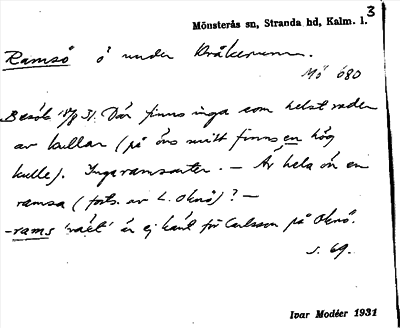 Mönsterås sn, Stranda hd, Kalm. l. 3
Ramsö ö under Kråkerum.
Mö 680
Besök 18/8 31. Där finns inga som helst rader
av kullar (på öns mitt finns en hög
kulle). Inga ramsarter. – Är hela ön en
ramsa (forts. av L. Oknö)? –
-rams 'växt' är ej känt för Carlsson på Oknö.
s. 69.
Ivar Modéer 1931